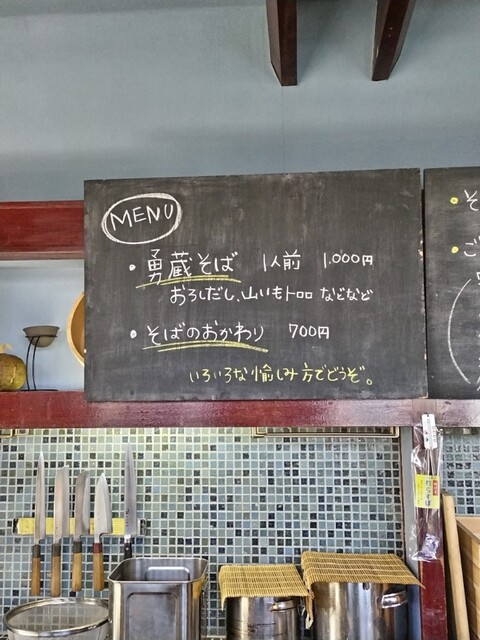 MENU
・勇蔵そば 1人前 1.000円
おろしだし、山いもトロロ などなど
・そばのおかわり 700円
いろいろな愉しみ方でどうぞ。
・そ
・ご